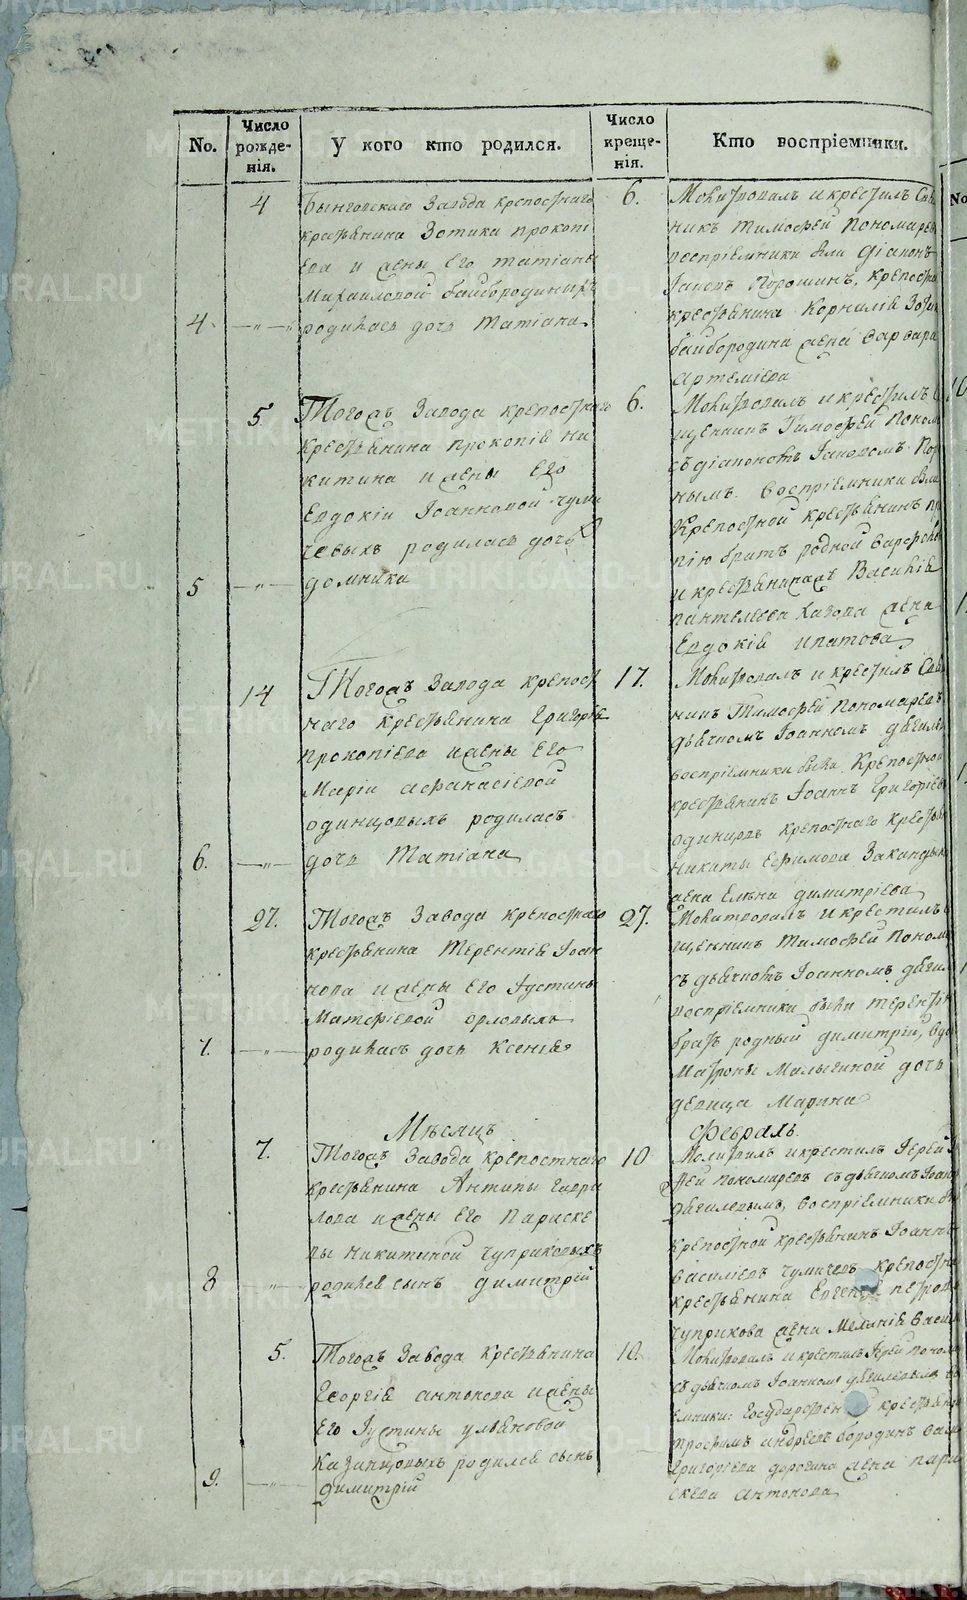 No.
Число рожденія.
У кого кто родился.
Число крещенія.
Кто воспріемники.
4
Бынговскаго Завода крепостнаго
крестьянина Зотика прокопі
ева и жены Его татіаны
Михаиловой байбородиныхъ
4. родилась дочь татіана
6.
Молитвовалъ и крестилъ
никъ тимофей пономарев
воспріемники были діаконъ
Іаковъ Порошинъ, крепостна
крестьянина Корнилія Зотик
байбородина жена варвара
Артемьева
5.
Тогожъ Завода крепостнаго
крестьянина прокопія ни
китина и жены Его
Евдокіи Іоанновой чуми
чевыхъ родилась дочь
5 домника
6.
Молитвовалъ и крестилъ
щенникъ Тимофей Поном
съ діакономъ Іаковомъ Пор
нымъ. воспріемники были
Крепостной крестьянинъ
пію братъ родной
и крестьянина Василія
пантелеева жена
Евдокія ипатова
14
Тогожъ Завода крепост
наго крестьянина григорія
прокопіева и жены Его
Маріи афанасіевой
одинцовыхъ родилась
6. дочь Татіана
17.
Молитвовалъ и крестилъ
никъ Тимофей Пономаревъ
дьячкомъ Іоанномъ дягилев
воспріемники были Крепостной
крестьянинъ Іоаннъ Григоріев
одинцовъ крепостнаго крестьян
никиты Ефимова
жена Елена димитріева
27.
Тогожъ Завода крепостнаго
крестьянина Терентія Іоан
нова и жены Его Іустины
Матфіевой орловыхъ
7. родилась дочь Ксенія
27.
Молитвовалъ и крестилъ
щенникъ Тимофей Поном
съ дьячкомъ Іоанномъ дягил
воспріемники были терентія
братъ родный димитрій, вдо
Матроны Малыгиной дочь
девица Марина
Мѣсяцъ февраль.
7.
Тогожъ Завода крепостнаго
крестьянина Антипы гаври
лова и жены Его Параске
вы никитиной чуприковыхъ
8 родился сынъ димитрій
10
Молитвилъ и крестилъ Іерей
фей пономаревъ съ дьячкомъ Іоан
дягилевымъ, воспріемники бы
крепостной крестьянинъ Іоаннъ
василіевъ чумичевъ крепостна
крестьянина Евгенія петрова
чуприкова жена Меланія васил
5.
Тогожъ Завода крестьянина
Георгія антонова и жены
Его Іустины ульяновой
казанцовыхъ родился сынъ
9. димитрій
10.
Молитвовалъ и крестилъ Іерей поном
съ дьячкомъ Іоанномъ дягилевымъ во
емники: государственной крестьян
трофимъ андреевъ бородинъ
григоріева дорогина жена пара
скева антонова